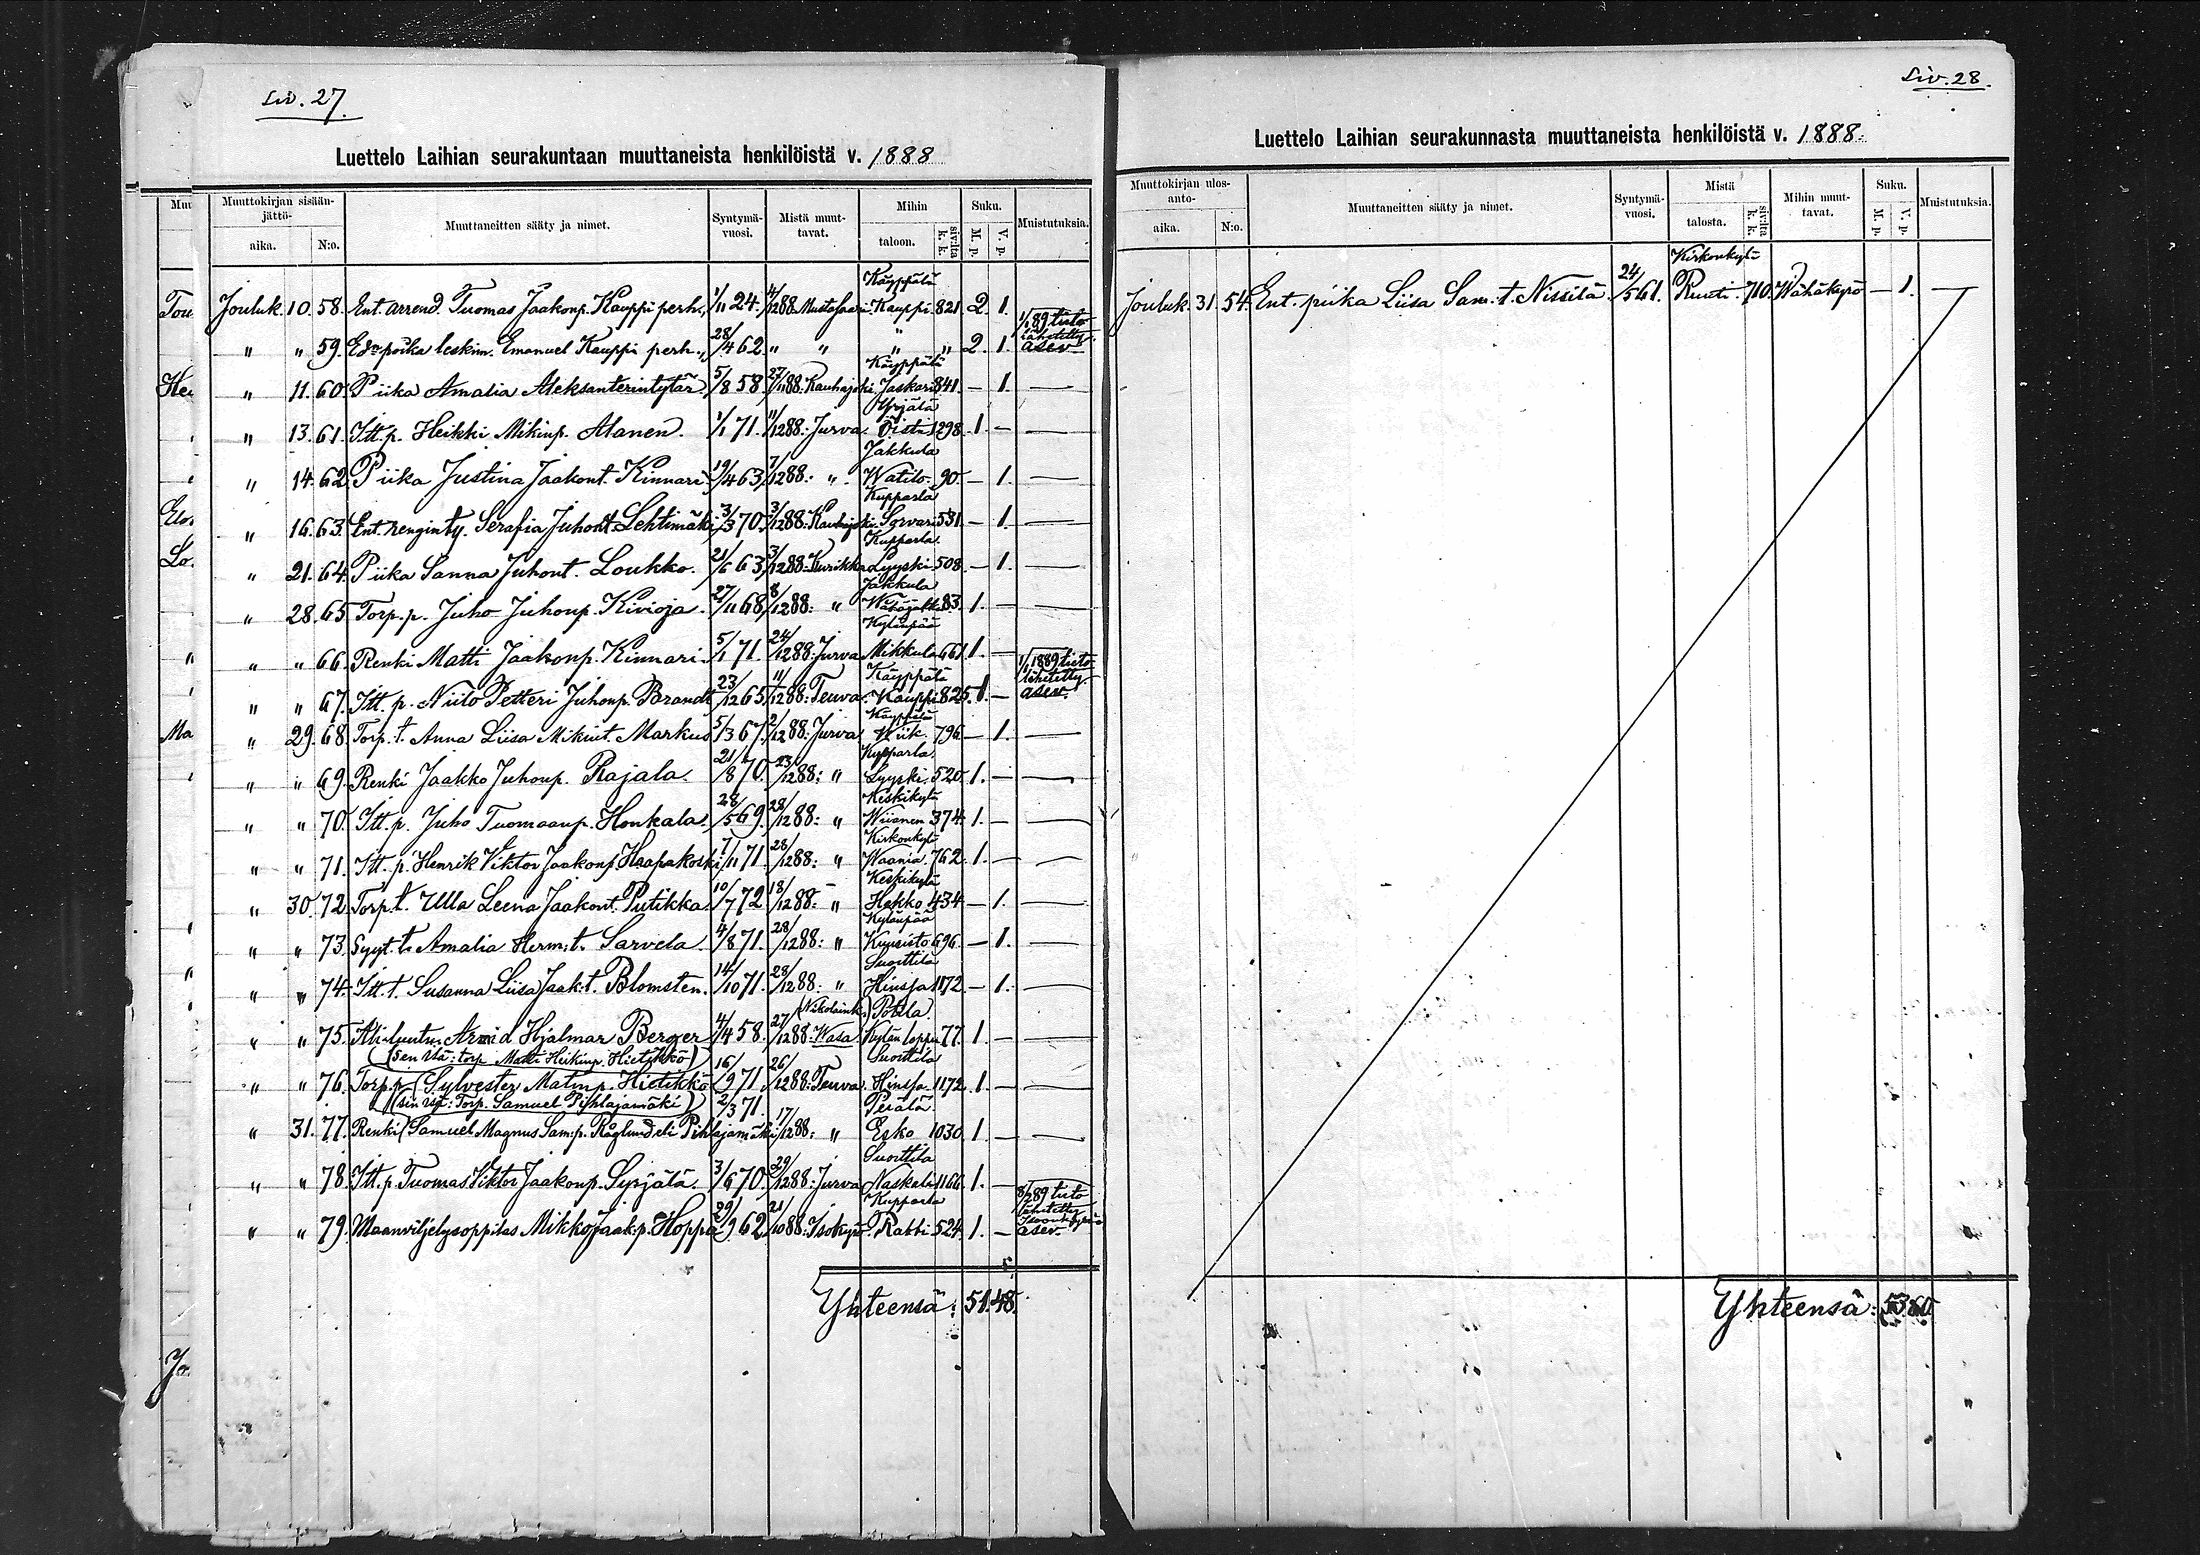 Siv. 27.
Luettelo Laihian seurakuntaan muuttaneista henkilöistä v. 1888
Muuttokirjan sisään-jättö- aika. N:o. Muuttaneitten sääty ja nimet. Syntymä-vuosi. Mistä muut-tavat. Mihin taloon. sivilta k. k. Suku. M. p. V. p. Muistutuksia.
Jouluk. 10. 58. Ent. arrend. Tuomas Jaakonp. Kauppi perh. 1/11 24. 4/12 88. Mustasaari Käyppälä Kauppi 821 2. 1.
" " 59. poika leskim. Emanuel Kauppi perh. 28/4 62 " " " " 2. 1. 89 tieto lähetetty asev
" 11. 60. Piika Amalia Aleksanterintytär 5/8 58 27/11 88. Kauhajoki Käyppälä Jaskari 841 — 1. —
" 13. 61. Itt. p. Heikki Mikinp. Alanen. 1/1 71. 11/12 88: Jurva Yrjälä Öisti 1298 1. —
" 14. 62. Piika Justina Jaakont. Kinnari 19/4 63 7/12 88: " Jakkula Watilo 90. — 1. —
" 16. 63. Ent. renginty. Serafia Juhont. Lehtimäki 3/3 70. 3/12 88: Kauhajoki Kupparla Sorvari 531 — 1. —
" 21. 64. Piika Sanna Juhont. Loukko. 21/6 63 3/12 88: Kurikka Kupparla Lyyski 508 — 1. —
" 28. 65. Torp. p. Juho Juhonp. Kivioja. 27/11 68 8/12 88: " Jakkula 83. 1. — —
" " 66. Renki Matti Jaakonp. Kinnari. 5/1 71. 24/12 88: Jurva Kylänpää Mikkula 661 1. —
" " 67. Itt. p. Niilo Petteri Juhonp. Brandt 23/12 65 11/12 88: Teuva Käyppälä Kauppi 825. 1. — 1889 tieto lähetetty asev.
" 29. 68. Torp. t. Anna Liisa Mikint. Markus 5/3 67. 2/12 88: Jurva Käyppälä Wiik. 796. — 1. —
" " 69. Renki Jaakko Juhonp. Rajala. 21/8 70. 23/12 88: " Kupparla Lyyski 520 1. — —
" " 70. Itt. p. Juho Tuomaanp. Honkala. 28/5 69. 28/12 88: " Keskikylä Wiianen 374. 1. — —
" " 71. Itt. p. Henrik Viktor Jaakonp. Haapakoski 7/11 71. 28/12 88: " Kirkonkylä Waania. 762. 1. — —
" 30. 72. Torp. t. Ulla Leena Jaakont. Putikka. 10/7 72 18/12 88: " Keskikylä Hakko 434 — 1. —
" " 73. Syyt. t. Amalia Herm:t. Sarvela. 4/8 71. 28/12 88: " Kylänpää Kuusisto 696. — 1. —
" " 74. Itt. t. Susanna Liisa Jaak:t. Blomsten. 14/10 71. 28/12 88: " Suorttila Hinssa 1172. — 1. —
" " 75. Arvid Hjalmar Berger 4/4 58. 27/12 88: (Nikolaink.) Wasa Potila. Kylän loppu 77. 1. —
(Sen isä: torp. Matti Heikinp. Hietikkö)
" " 76. Torp. p. Sylvester Matinp. Hietikkö 16/9 71. 26/12 88: Teuva. Suorttila Hinssa. 1172. 1. — —
(sen isä: Torp. Samuel Pihlajamäki)
" 31. 77. Renki Samuel Magnus Sam:p. Råglund eli Pihlajamäki 2/3 71. 17/12 88: " Perälä. Esko 1030. 1. — —
" " 78. Itt. p. Tuomas Viktor Jaakonp. Syrjälä. 3/6 70. 29/12 88: Jurva Suorttila Naskali 1166. 1. —
" " 79. Maanviljelysoppilas Mikko Jaak:p. Hoppa 29/9 62. 21/10 88: Isokyrö Kupparla Rabbi 524. 1. — 89 tieto lähetetty asev.
Yhteensä: 51. 48.
Siv. 28.
Luettelo Laihian seurakunnasta muuttaneista henkilöistä v. 1888.
Muuttokirjan ulos-anto- aika. N:o. Muuttaneitten sääty ja nimet. Syntymä-vuosi. Mistä talosta. sivilta k. k. Mihin muut-tavat. Suku. M. p. V. p. Muistutuksia.
Jouluk. 31. 54. Ent. piika Liisa Sam:t. Nissilä. 24/5 61. Kirkonkylä Ruuti 710. Wähäkyrö — 1. —
Yhteensä: 53
Tou
Ma